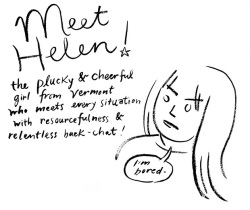 Meet
Helen!
the plucky & cheerful
girl from Vermont
who meets every situation
with resourcefulness &
relentless back-chat!
I'm
bored.